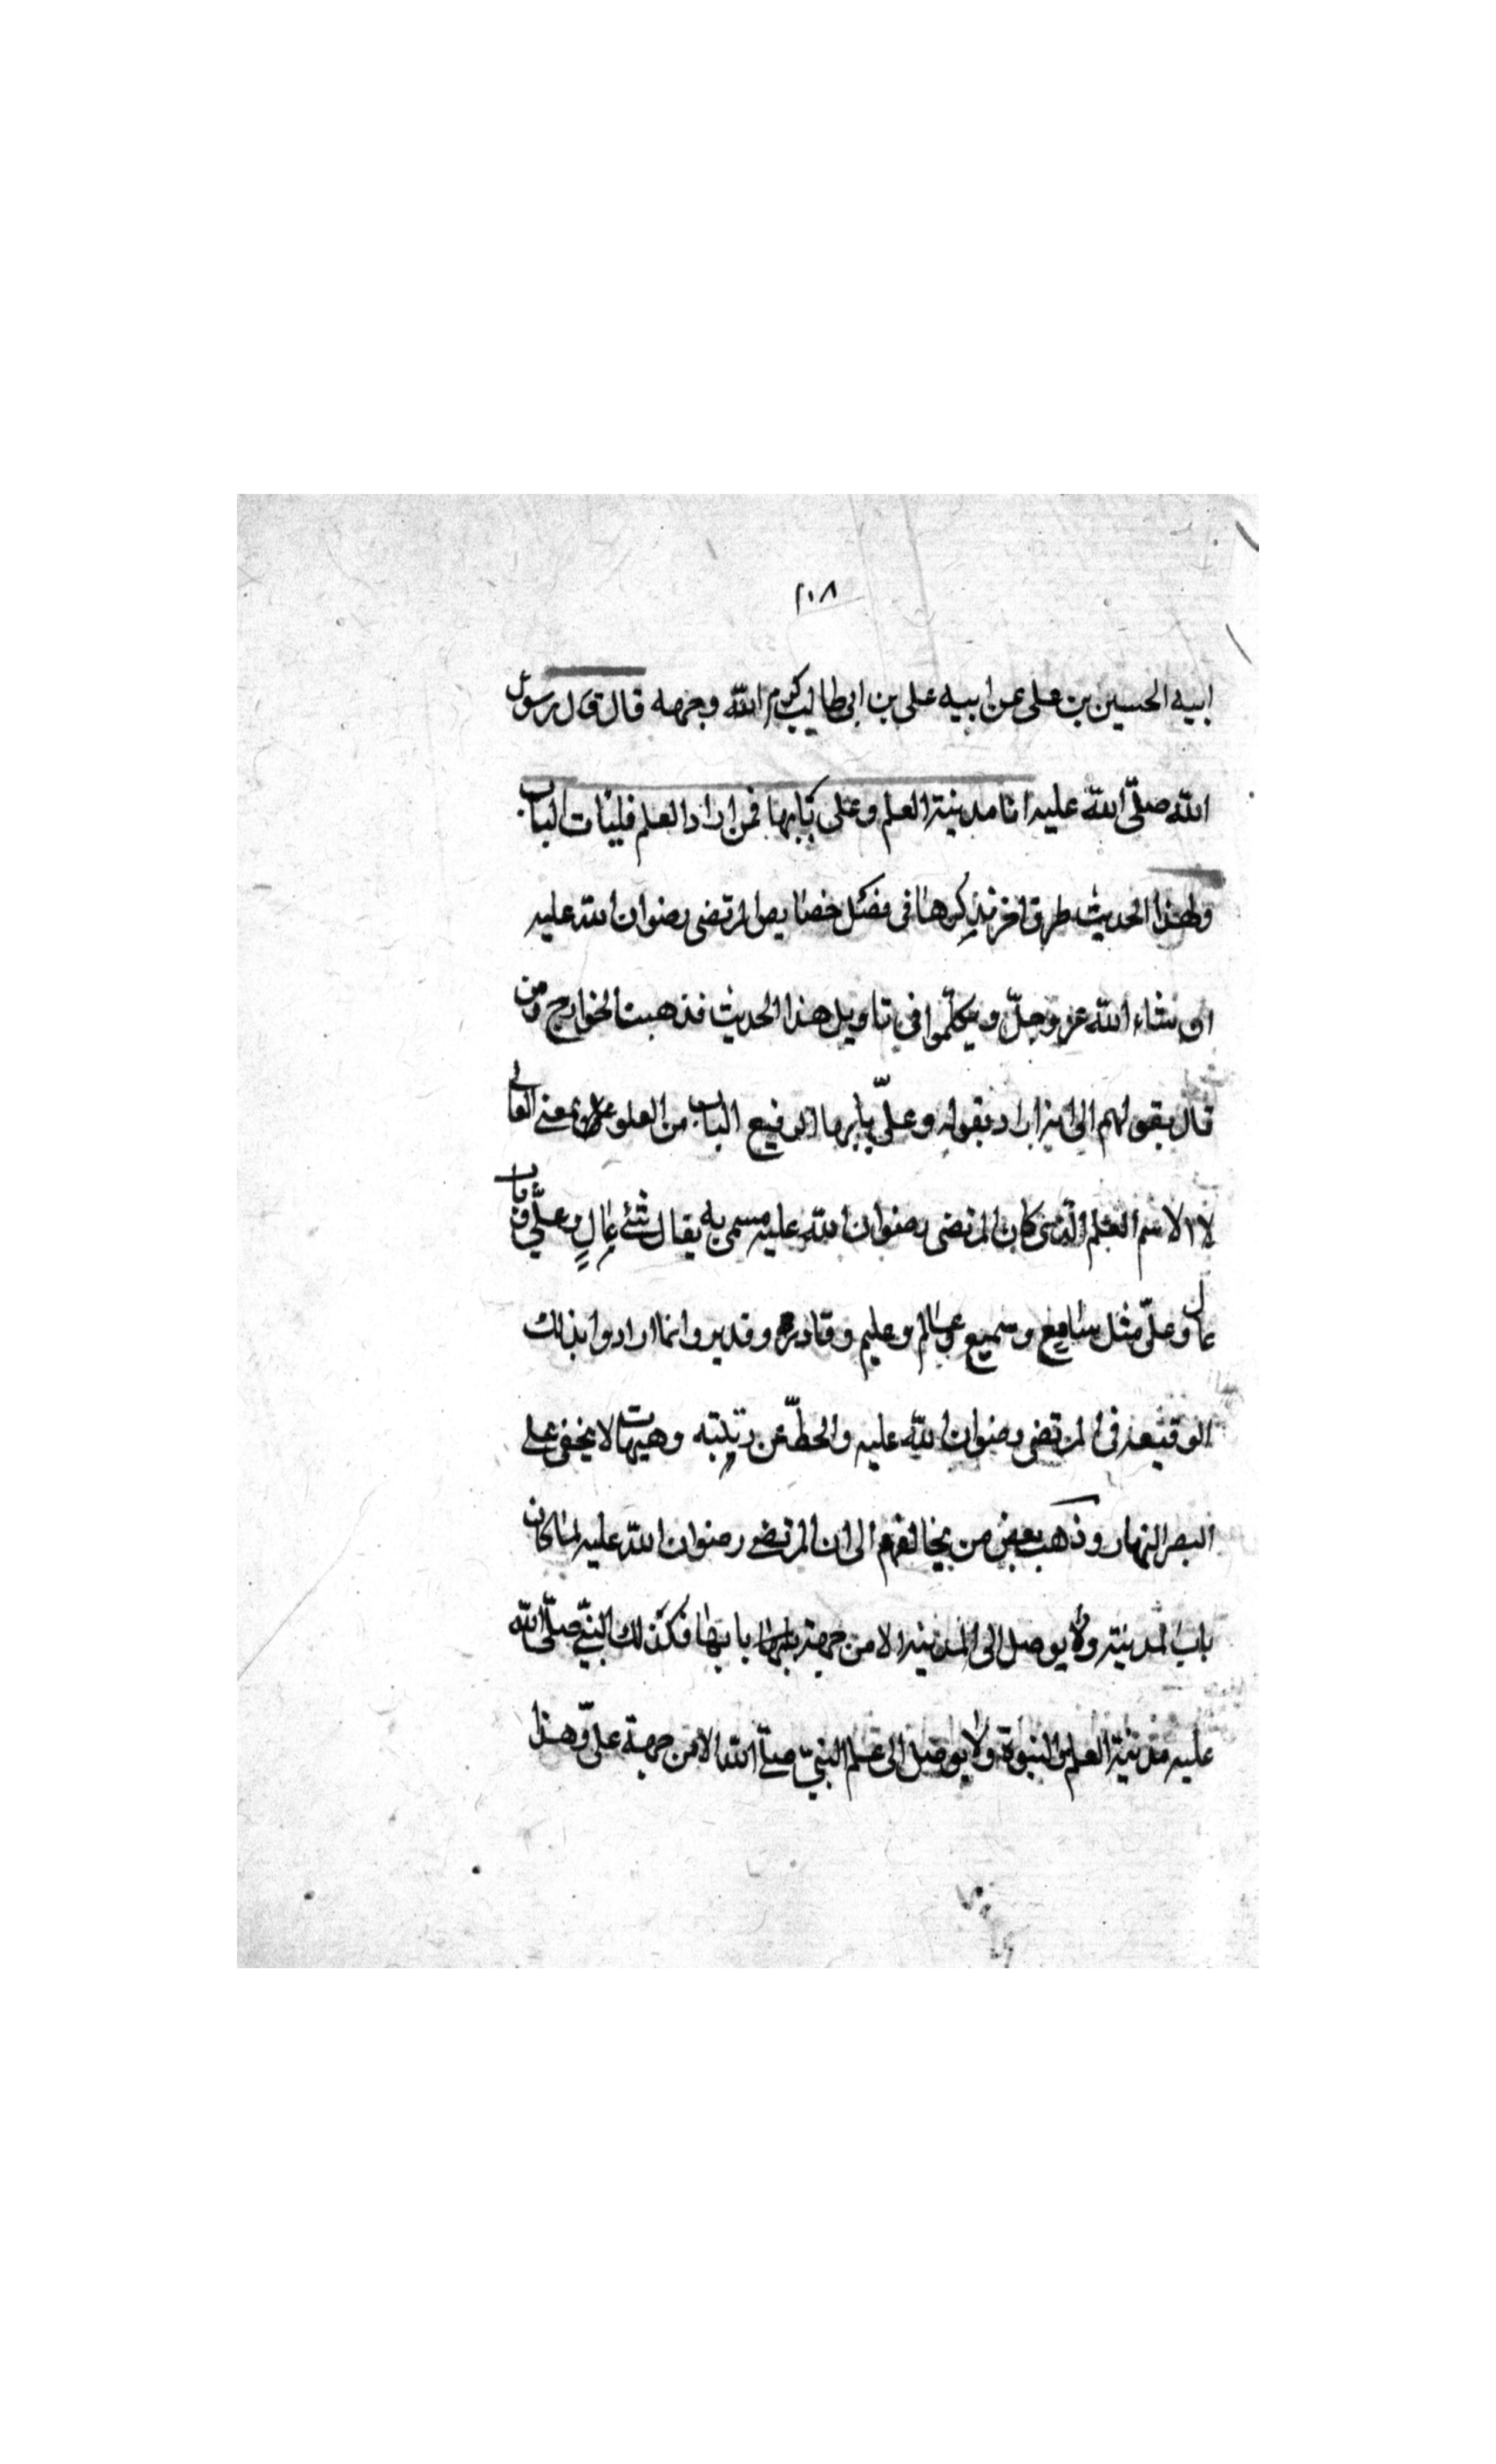 ٢٠٨
ابيه الحسين بن على عن ابيه على بن ابى طالب كرم الله وجهه قال قال رسول
الله صلّى الله عليه انا مدينة العلم وعلى بابها فمن اراد العلم فليات الباب
ولهذا الحديث طرق اخر نذكرها فى فصل خصايص المرتضى رضوان الله عليه
ان شاء الله عز وجلّ وتكلّموا فى تاويل هذا الحديث فذهبت الخوارج ومن
قال بقولهم الى انه اراد بقوله وعلىّ بابها اى رفيع الباب من العلو بمعنى العالى
لا الاسم العلم الذى كان المرتضى رضوان الله عليه مسمى به يقال شئ عالٍ وعلىّ وباب
عال وعلىّ مثل سامع وسميع وعالم وعليم وقادر وقدير وانما ارادوا بذلك
الوقيعة فى المرتضى رضوان الله عليه والحطّ عن رتبته وهيهات لا يخفى على
البصر النهار وذهب بعض من يخالفهم الى ان المرتضى رضوان الله عليه لما كان
باب المدينة ولا يوصل الى المدينة الا من جهة بابها فكذلك النبىّ صلّى الله
عليه مدينة العلم والنبوة ولا يوصل الى علم النبىّ صلّى الله الا من جهة علىّ وهذا